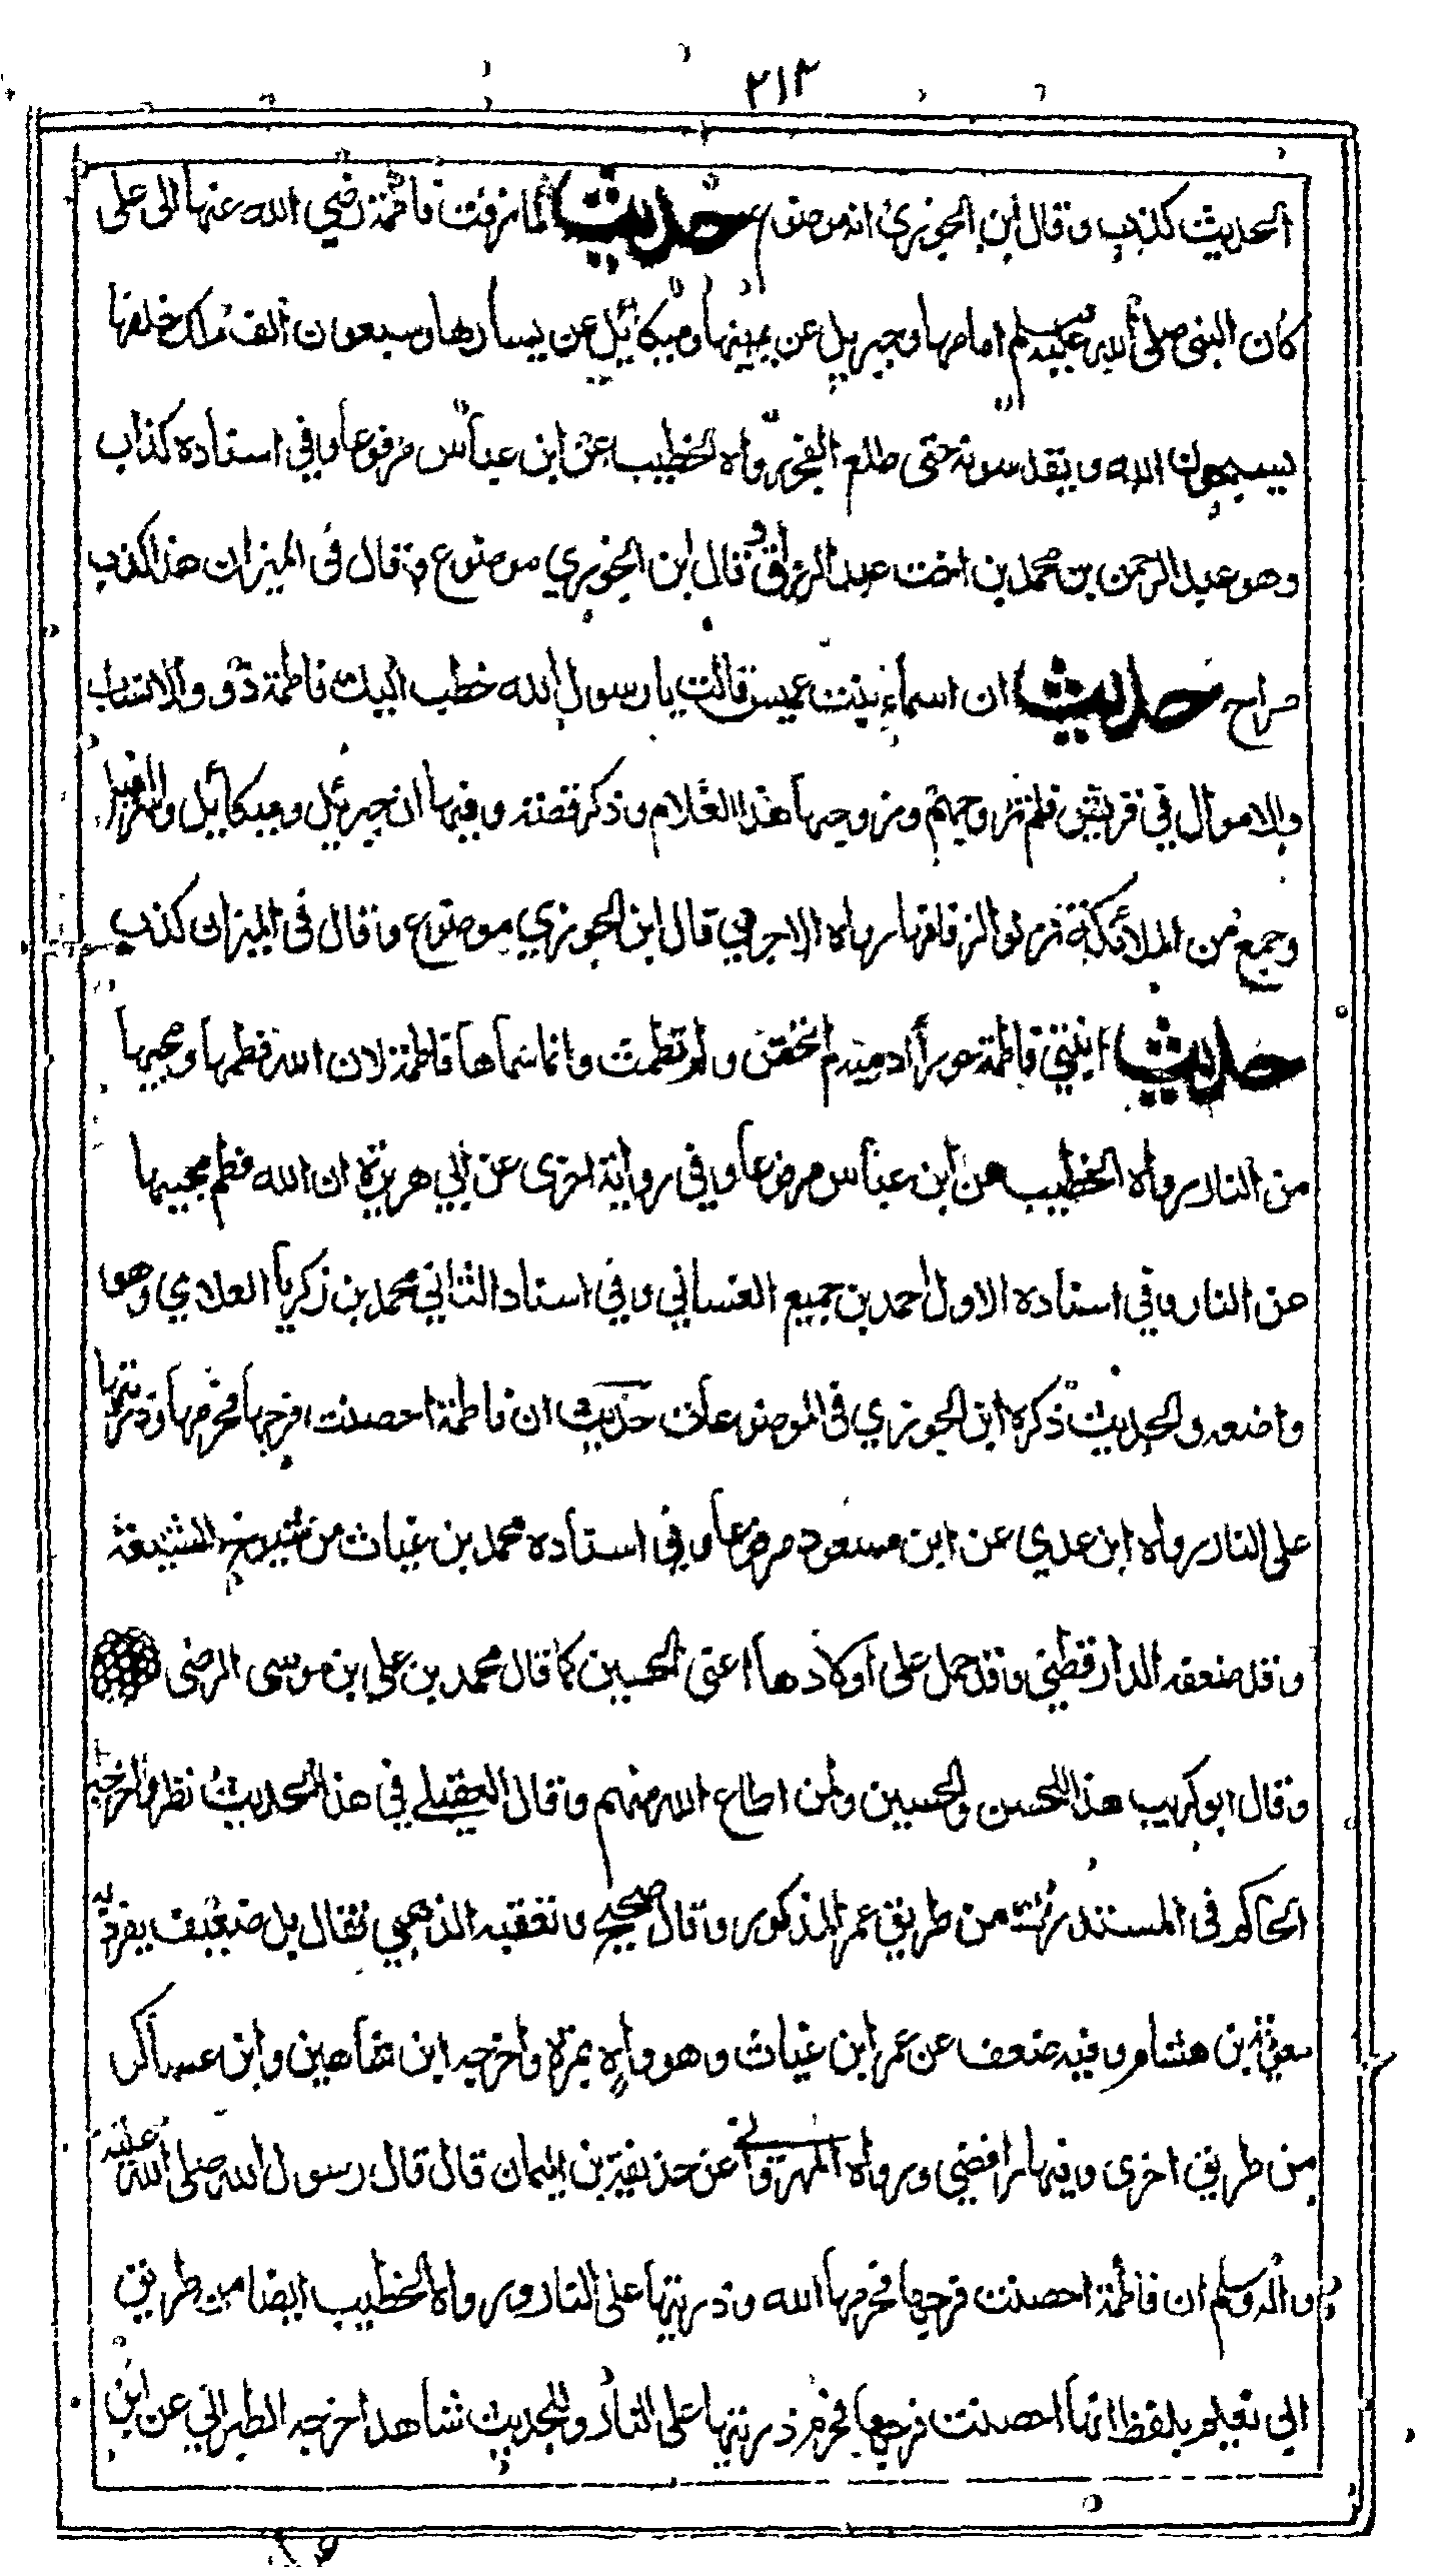 ٢١٢
الحديث كذب وقال ابن الجوزي انه موضوع حديث لما زفت فاطمة رضي الله عنها الى على
كان النبي صلى الله عليه وسلم امامها وجبريل عن يمينها وميكائيل عن يسارها وسبعون الف ملك خلفها
يسبحون الله ويقدسونه حتى طلع الفجر رواه الخطيب عن ابن عباس مرفوعا وفي اسناده كذاب
وهو عبد الرحمن بن محمد بن اخت عبد الرزاق وقال ابن الجوزي موضوع وقال في الميزان هذا كذب
صراح حديث ان اسماء بنت عميس قالت يا رسول الله خطب اليك فاطمة ذوو الانساب
والاموال في قريش فلم تزوجهم وزوجها هذا الغلام وذكر قصته وفيها ان جبرئيل وميكائيل واسرافيل
وجمع من الملائكة نزلوا لزفافها رواه الاجري قال ابن الجوزي موضوع وقال في الميزان كذب
حديث ابنتي فاطمة حوراء ادمية لم تحض ولم تطمث وانما سماها فاطمة لان الله فطمها ومحبيها
من النار رواه الخطيب عن ابن عباس مرفوعا وفي رواية اخرى عن ابي هريرة ان الله فطم محبيها
عن النار وفي اسناده الاول احمد بن جميع الغساني وفي اسناد الثاني محمد بن زكريا العلادي وهو
واضعه والحديث ذكره ابن الجوزي في الموضوعات حديث ان فاطمة احصنت فرجها فحرمها وذريتها
على النار رواه ابن عدي عن ابن مسعود مرفوعا وفي اسناده محمد بن غياث من شيوخ الشيعة
وقد ضعفه الدارقطني وقد حمل على اولادها اعني الحسين كما قال محمد بن علي بن موسى الرضى
وقال ابو كريب هذا للحسن والحسين ولمن اطاع الله منهم وقال العقيلي في هذا الحديث نظر واخرجه
الحاكم في المستدرك من طريق عمر المذكور وقال صحيح وتعقبه الذهبي فقال بل ضعيف يفرد به
معوية بن هشام وفيه ضعف عن عمر ابن غياث وهو واه بمرة واخرجه ابن شاهين وابن عساكر
من طريق اخرى وفيها رافضي ورواه المهرواني عن حذيفة بن اليمان قال قال رسول الله صلى الله عليه
واله وسلم ان فاطمة احصنت فرجها فحرمها الله وذريتها على النار ورواه الخطيب ايضا من طريق
ابي نعيم بلفظ انها احصنت فرجها فحرم ذريتها على النار وللحديث شاهد اخرجه الطبراني عن ابن